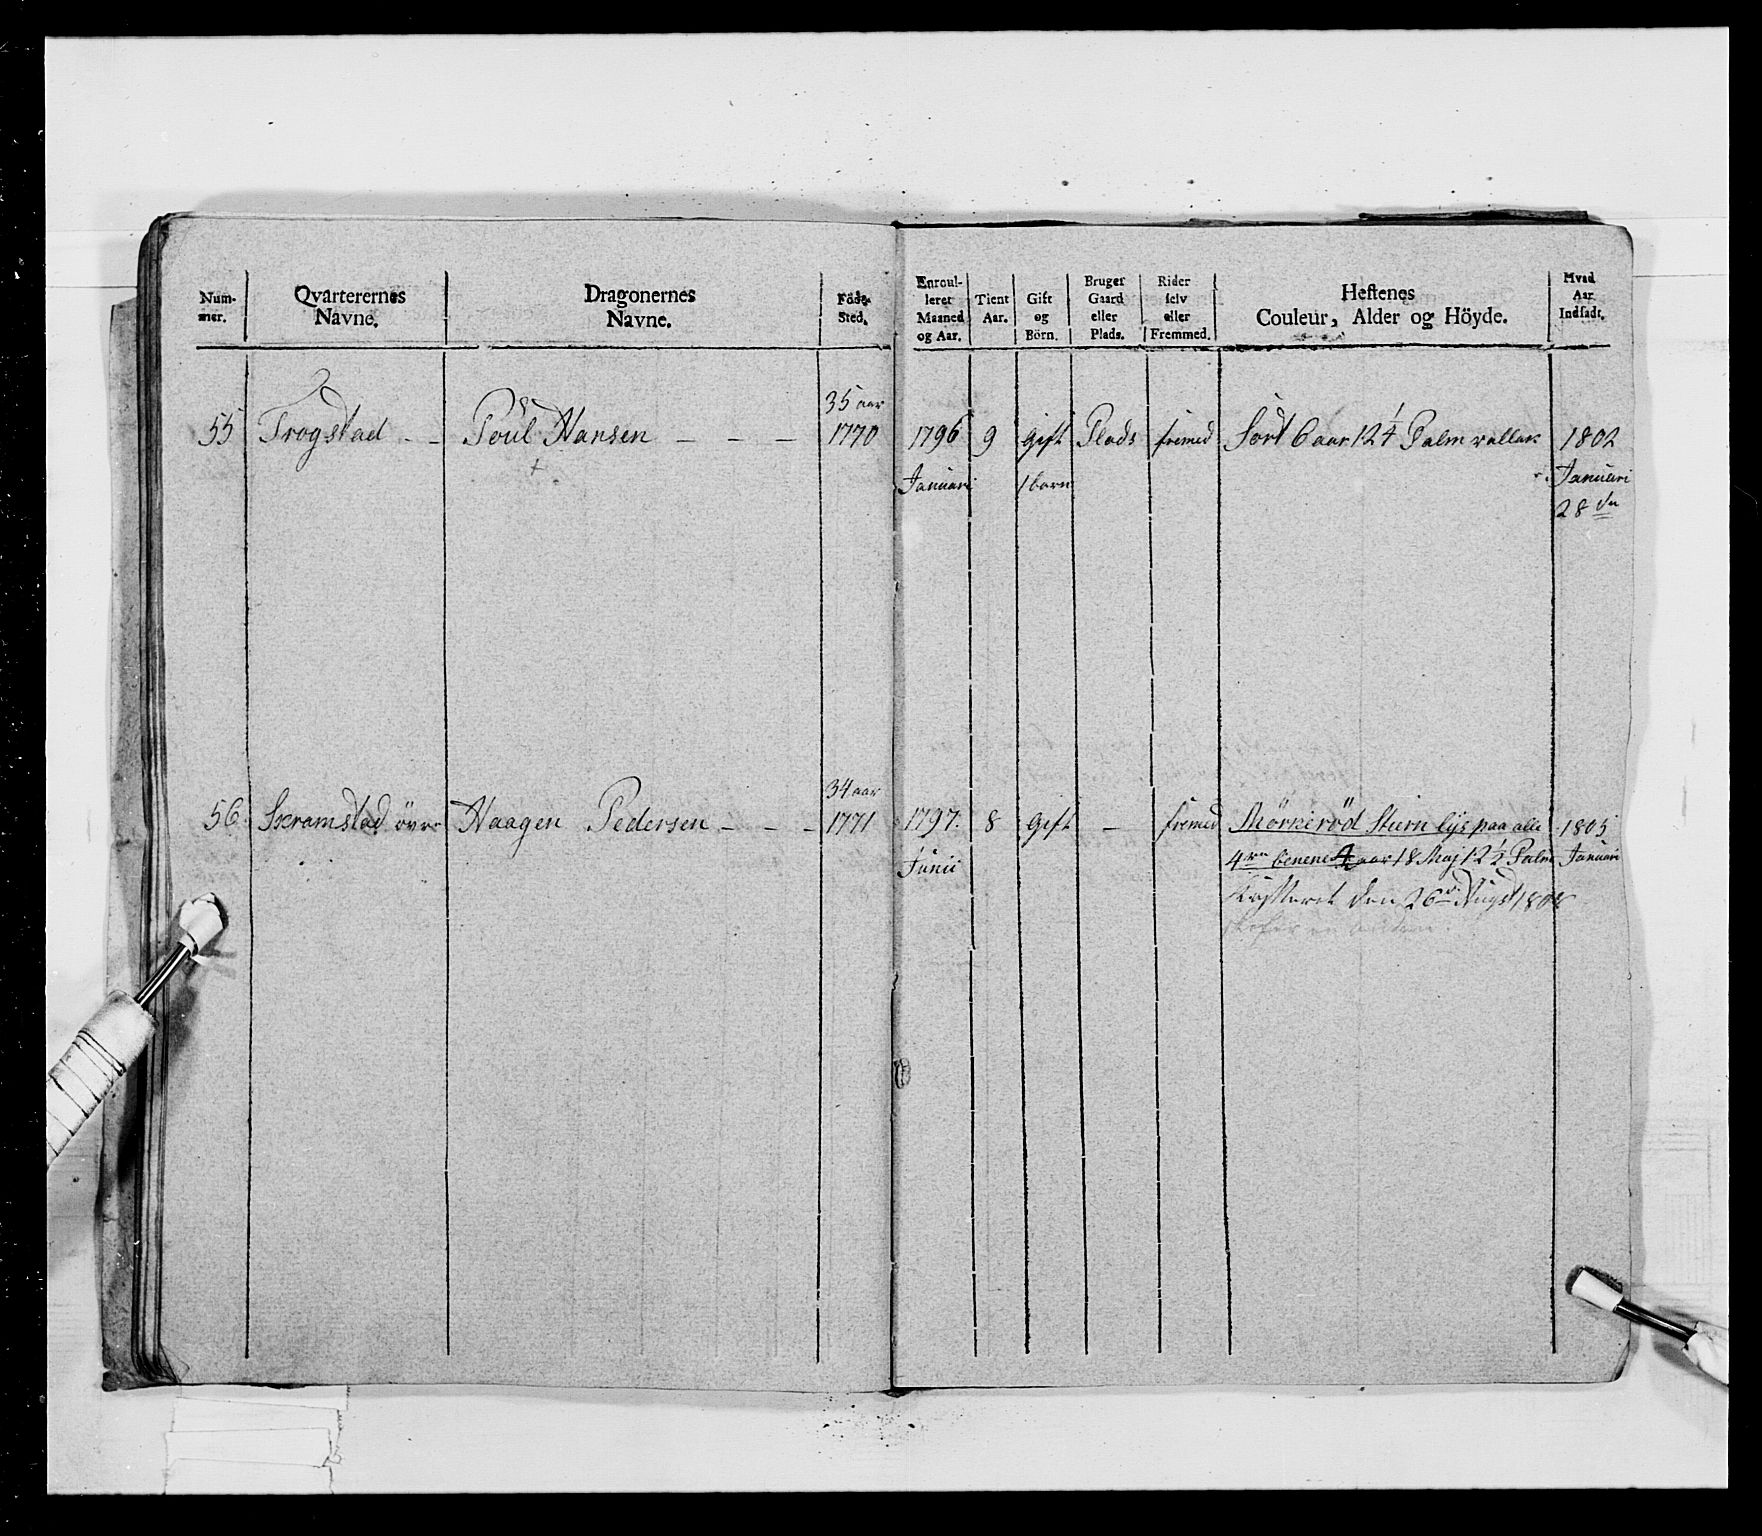 Num-
mer.
Qvarterernes
Navne.
Dragonernes
Navne.
Föde
Sted.
Enroul-
leret
Maaned
og Aar.
Tient
Aar.
Gift
og
Börn.
Bruger
Gaard
eller
Plads.
Rider
selv
eller
Fremmed.
Hestenes
Couleur, Alder og Höyde.
Hvad
Aar
Indsadt.
35 aar
55 Trogstad - - Poul Hansen - - - 1770 1796 9 Gift Plads fremed Sort 6 aar 12 1/4 Palm vallak 1802
Januari 1 barn Januari
28 de
34 aar
56 Skramstad övre Haagen Pedersen - - - 1771 1797. 8 Gift - fremed Mörkeröd Stiern lys paa alle 1805
Junii 4re benene 4 aar 18 Maj 12 1/2 Palm Januari
Kasseret den 26de August 1808